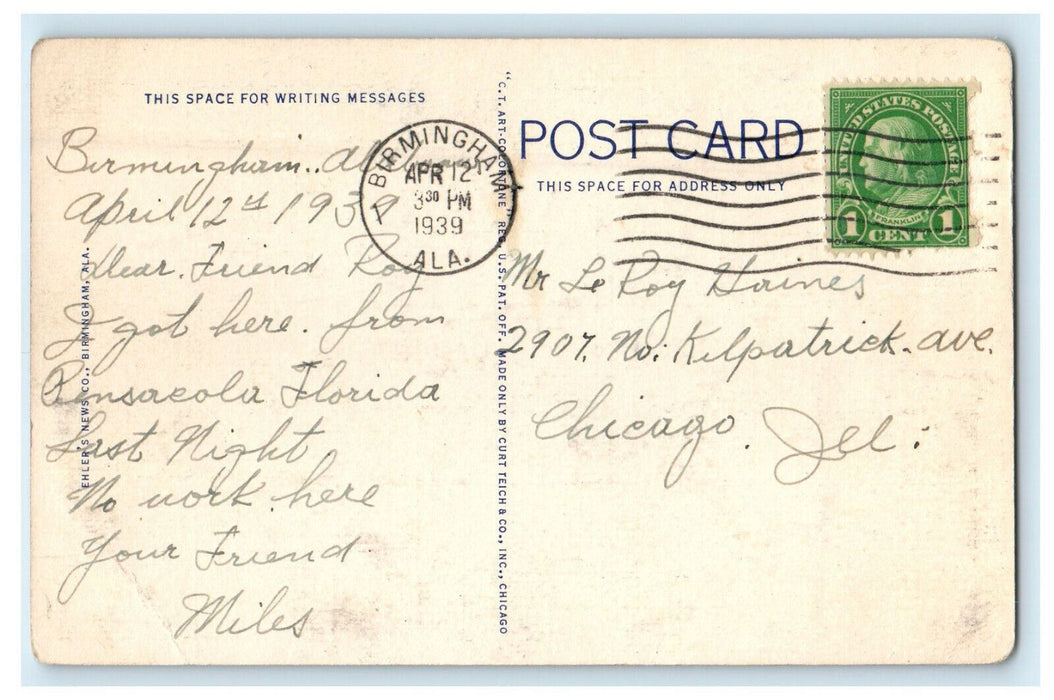 THIS SPACE FOR WRITING MESSAGES
Birmingham. Ala
April 12th 1939
Dear. Friend Roy
I got here. from
Pensacola Florida
Last Night
No work here
Your Friend
Miles
EHLER'S NEWS CO., BIRMINGHAM, ALA.
BIRMINGHAM
APR 12
3 30 PM
1939
ALA.
"C.T. ART-COLORTONE" REG. U.S. PAT. OFF. MADE ONLY BY CURT TEICH & CO., INC., CHICAGO
POST CARD
THIS SPACE FOR ADDRESS ONLY
UNITED STATES POSTAGE
FRANKLIN
1 CENT 1
Mr Le Roy Haines
2907. No: Kilpatrick. ave.
Chicago. Ill: